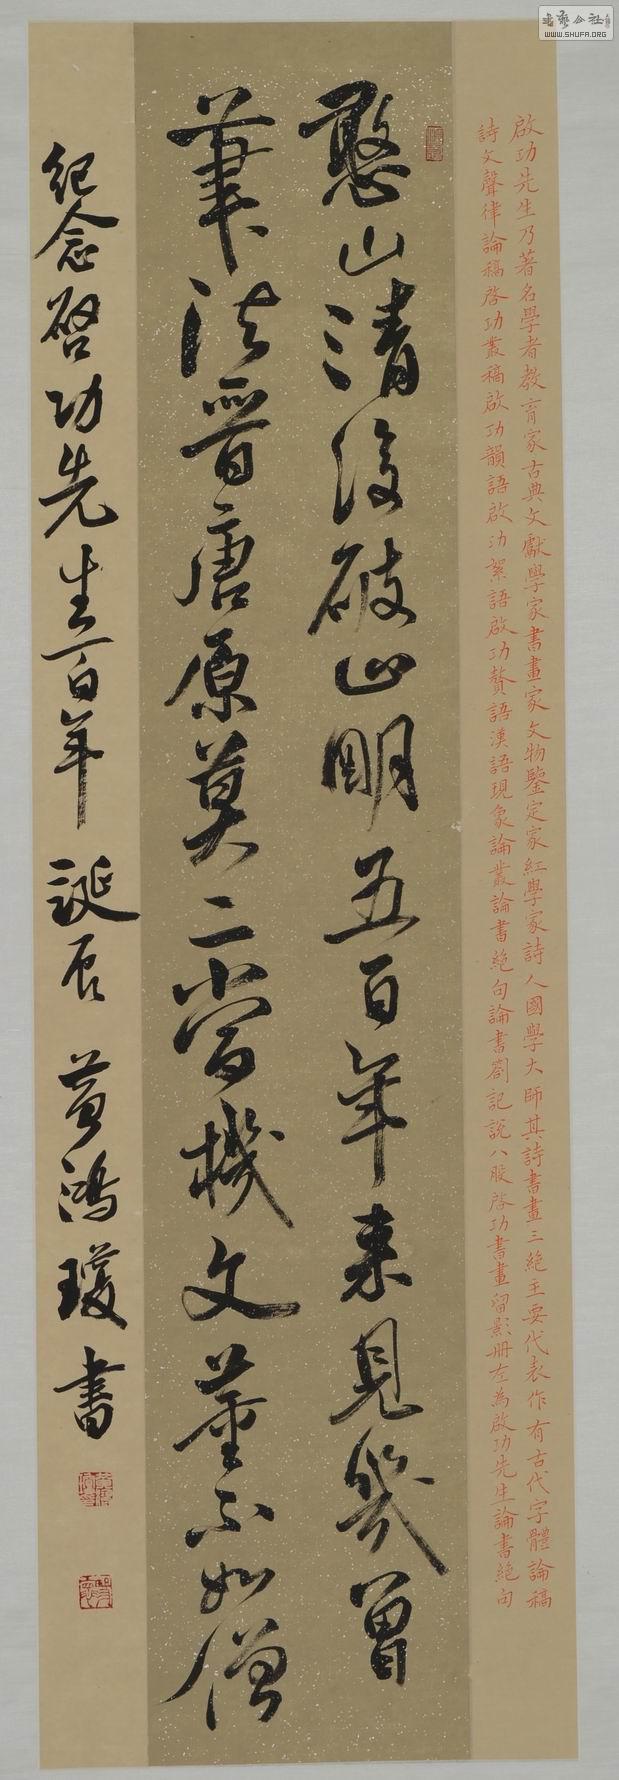 啟功先生乃著名學者教育家古典文獻學家書畫家文物鑒定家紅學家詩人國學大師其詩書畫三絕主要代表作有古代字體論稿
詩文聲律論稿啓功叢稿啟功韻語啟功絮語啟功贅語漢語現象論叢論書絕句論書劄記說八股啓功書畫留影冊左為啟功先生論書絕句
憨山清後破山明五百年來見幾曾
筆法晉唐原莫二當機文董不如僧
紀念啓功先生百年誕辰 黄鴻瓊書
書法公社
WWW.SHUFA.ORG